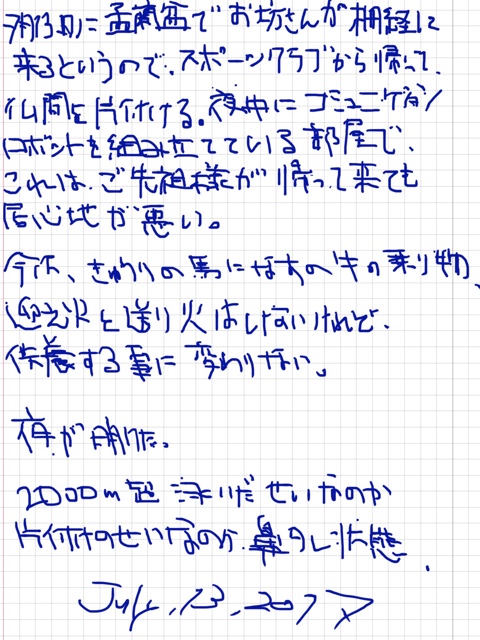 に盂蘭盆でお坊さんが棚経に
来るというので、スポーツクラブから帰って、
仏間を片付ける。夜中にコミュニケーション
ロボットを組み立てている部屋で、
これは、ご先祖様が帰って来ても
居心地が悪い。
今だ、きゅうりの馬になすの牛の乗り物、
迎え火と送り火はしないけれど、
供養する事に変わりない。
夜が明けた。
2000m超泳いだせいなのか
片付けのせいなのか、鼻タレ状態。
July, 13, 2017